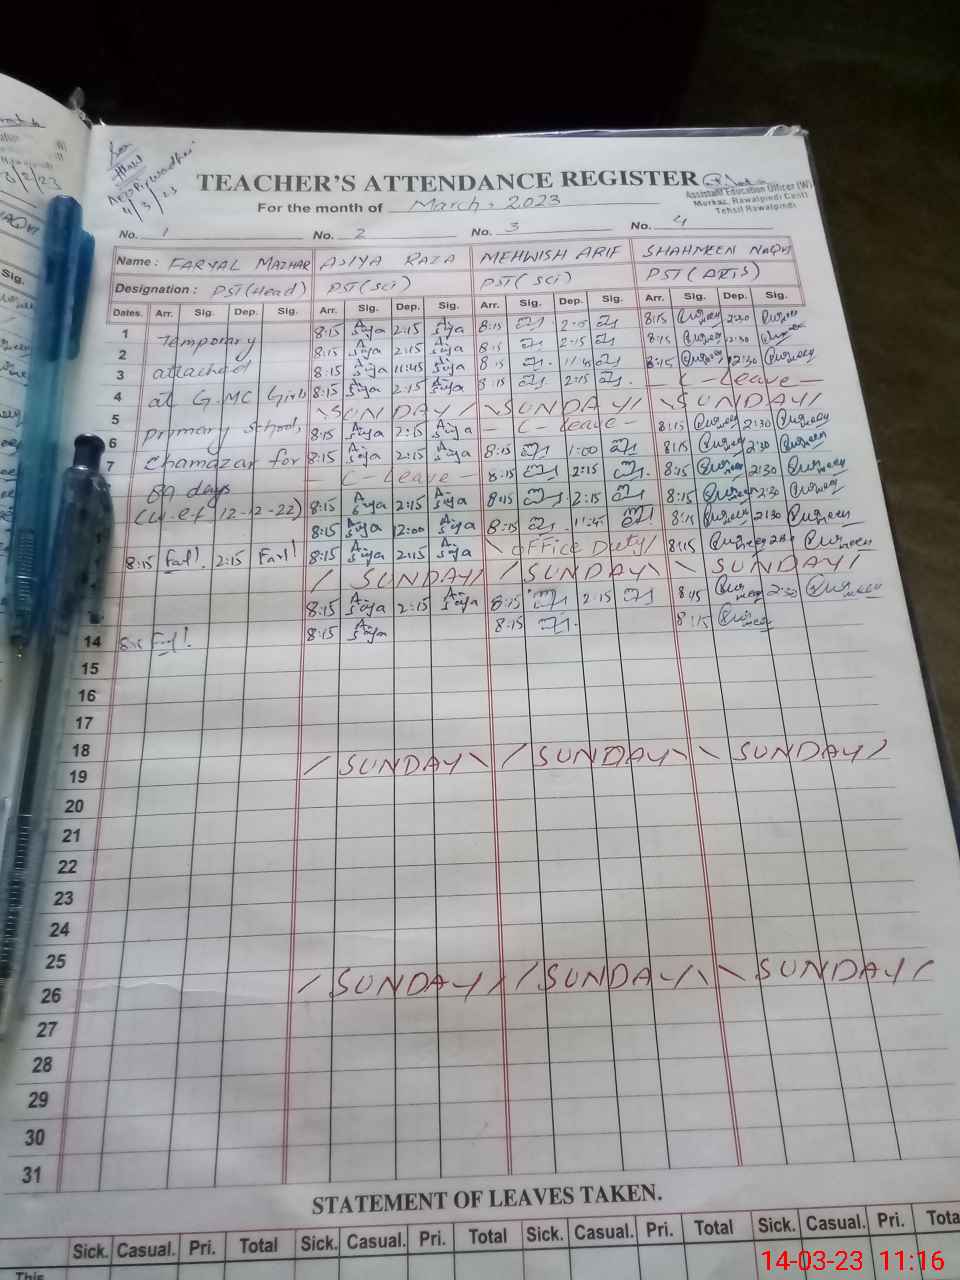 4/3/23
TEACHER'S ATTENDANCE REGISTER
Assistant Education Officer (W)
Markaz, Rawalpindi Cantt
Tehsil Rawalpindi
For the month of March, 2023
No. 1 No. 2 No. 3 No. 4
Name: FARYAL MAZHAR ASIYA RAZA MEHWISH ARIF SHAHMEEN NAQVI
Designation: PST(Head) PST(Sci) PST(Sci) PST(ARTS)
Dates. Arr. Sig. Dep. Sig. Arr. Sig. Dep. Sig. Arr. Sig. Dep. Sig. Arr. Sig. Dep. Sig.
1 Temporary 8:15 Asiya 2:15 Asiya 8:15 2:15 8:15 2:30
2 attached 8:15 Asiya 2:15 Asiya 8:15 2:15 8:15 2:30
3 8:15 Asiya 11:45 Asiya 8:15 11:45 8:15 12:30
4 at G.MC Girls 8:15 Asiya 2:15 Asiya 8:15 2:15 - C-Leave -
5 Primary School, \SUNDAY/ \SUNDAY/ \SUNDAY/
6 8:15 Asiya 2:15 Asiya - C-leave - 8:15 2:30
7 Chamazar for 8:15 Asiya 2:15 Asiya 8:15 1:00 8:15 2:30
89 days - C-Leave - 8:15 2:15 8:15 2:30
(w.ef 12-2-22) 8:15 Asiya 2:15 Asiya 8:15 2:15 8:15 2:30
8:15 Asiya 12:00 Asiya 8:15 11:45 8:15 2:30
8:15 2:15 8:15 Asiya 2:15 Asiya \OFFICE DUTY/ 8:15
/SUNDAY/ /SUNDAY\ \SUNDAY/
8:15 Asiya 2:15 Asiya 8:15 2:15 8:15 2:30
14 8:15 8:15 Asiya 8:15 8:15
15
16
17
18
19 /SUNDAY\ /SUNDAY\ \SUNDAY/
20
21
22
23
24
25
26 /SUNDAY/ /SUNDAY\ \SUNDAY/
27
28
29
30
31
STATEMENT OF LEAVES TAKEN.
Sick. Casual. Pri. Total Sick. Casual. Pri. Total Sick. Casual. Pri. Total Sick. Casual. Pri. Tota
This
14-03-23 11:16